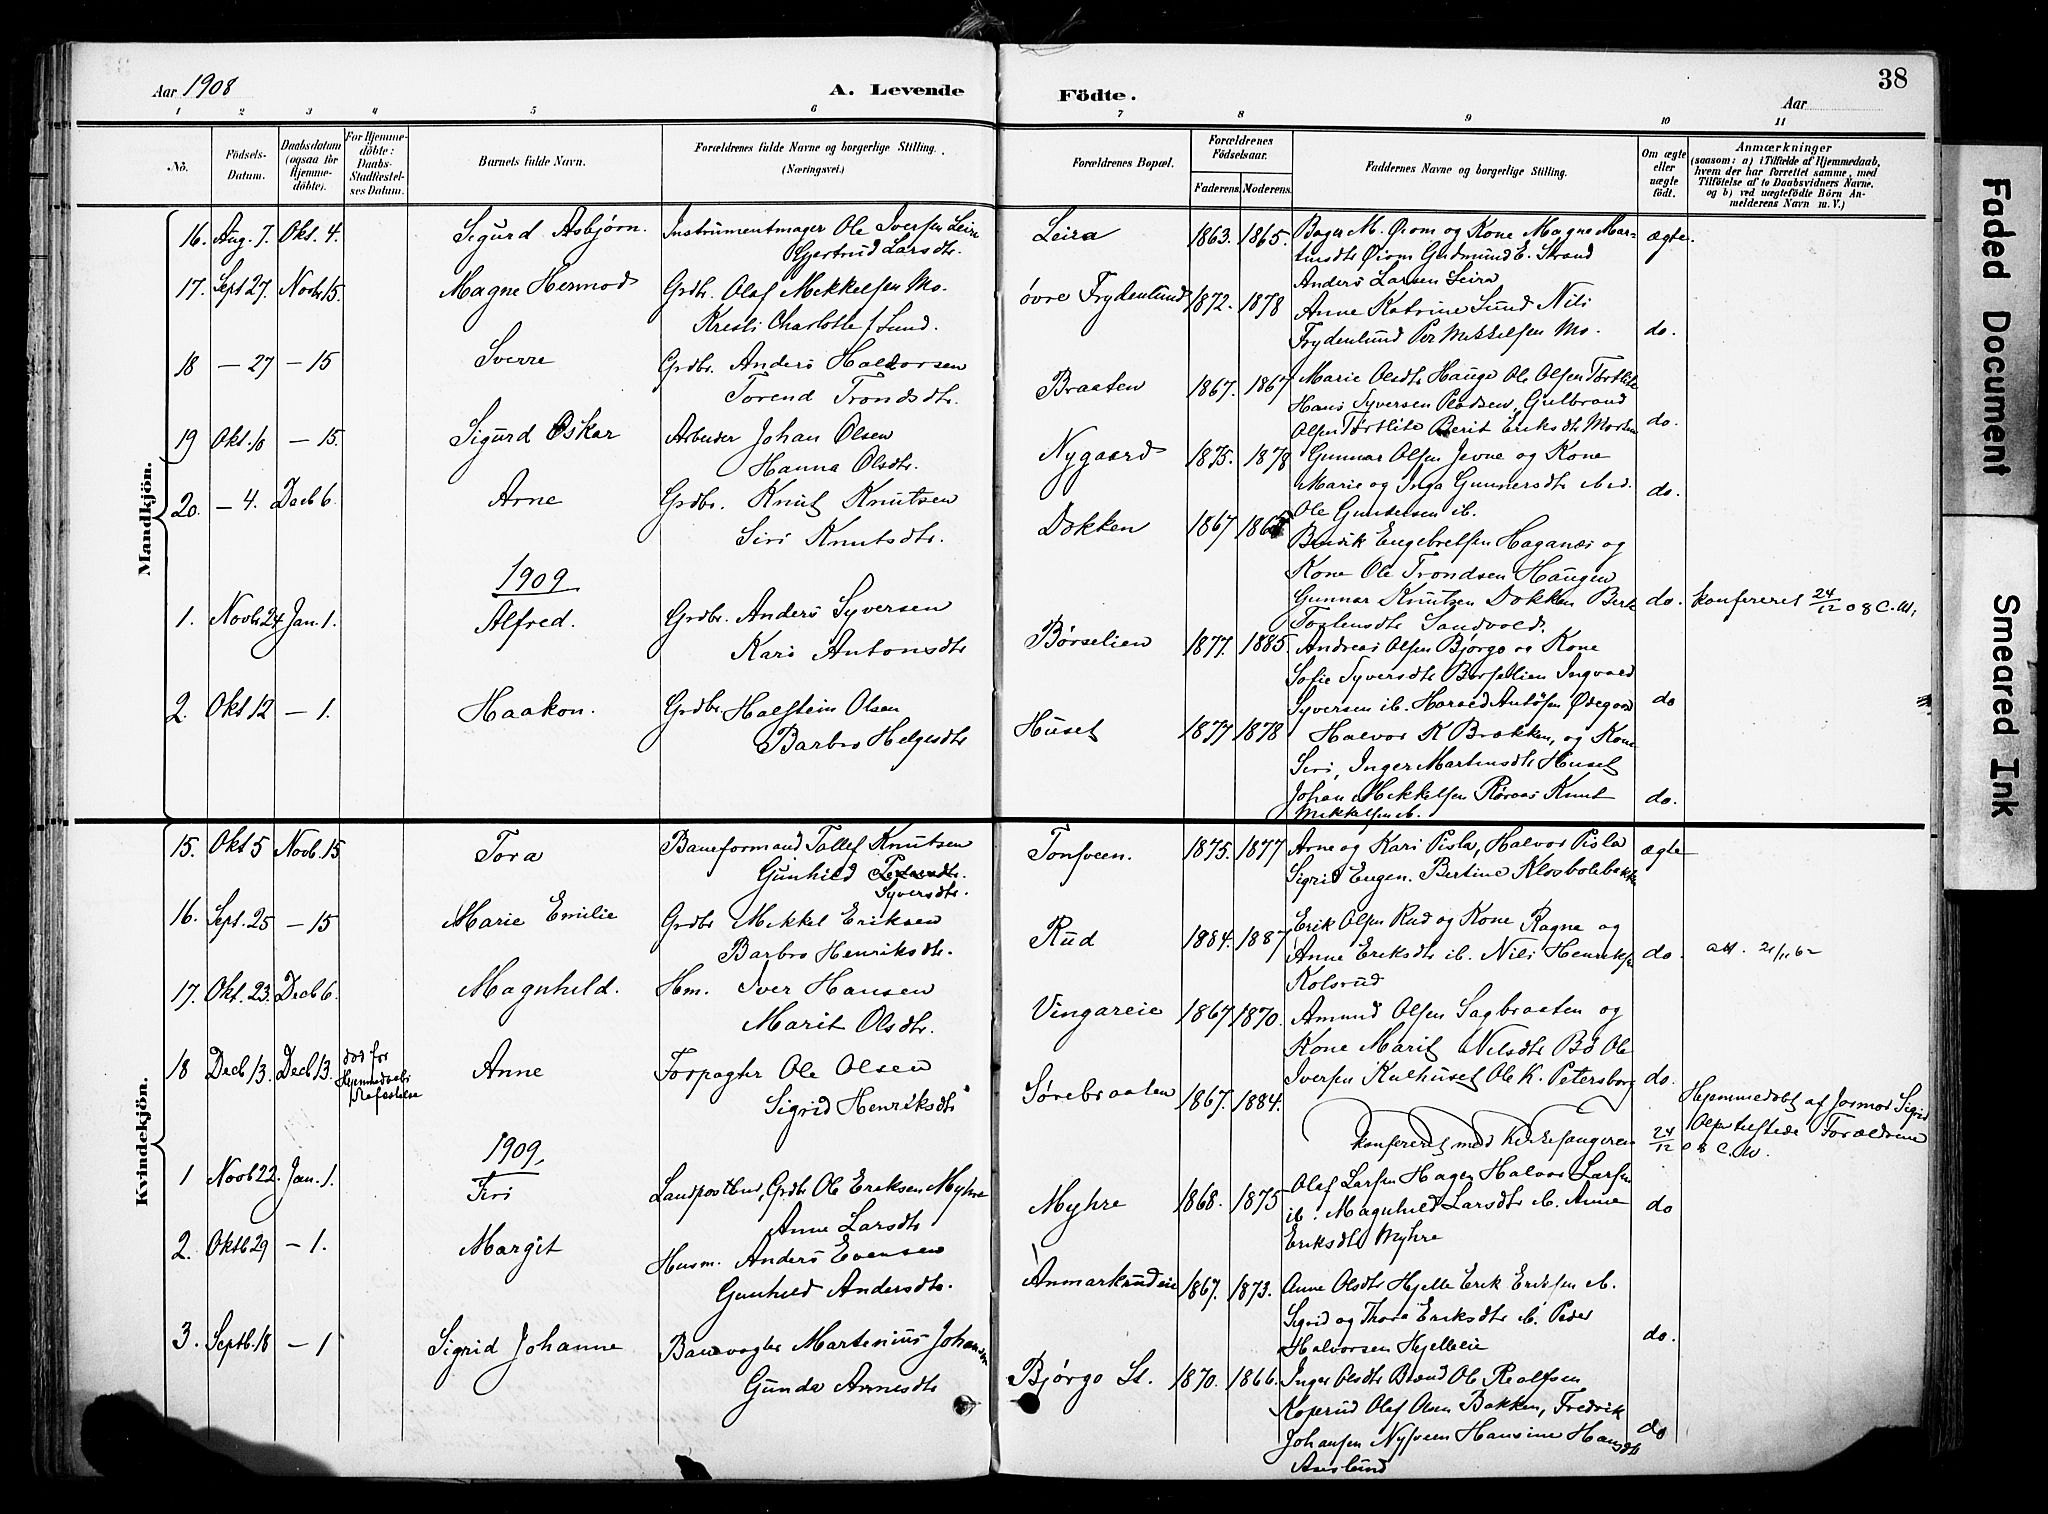 Aar 1908
A. Levende
Födte.
Aar
38
1 2 3 4 5 6 7 8 9 10 11
No.
Födsels-
Datum.
Daabsdatum
(ogsaa for
Hjemme-
döbte).
For Hjemme-
döbte:
Daabs-
Stadfæstel-
ses Datum.
Barnets fulde Navn.
Forældrenes fulde Navne og borgerlige Stilling.
(Næringsvei.)
Forældrenes Bopæl.
Forældrenes
Födselsaar.
Faderens. Moderens.
Faddernes Navne og borgerlige Stilling.
Om ægte
eller
uægte
födt.
Anmærkninger
(saasom: a) i Tilfælde af Hjemmedaab,
hvem der har forrettet samme, med
Tilföielse af to Daabsvidners Navne,
og b) ved uægtefödte Börn An-
melderens Navn m. V.)
Mandkjön.
16. Aug. 7. Okt. 4. Sigurd Asbjørn. Instrumentmager Ole Iversen Leira
Gjertrud Larsdtr.
Leira 1863. 1865. Bager M. Øiom og Kone Magne Mar-
tinsdtr Øiom Gudmund E. Strand
Anders Larsen Leira
ægte.
17. Sept 27. Novbr 15. Magne Hermod Grdbr. Olaf Mikkelsen Mo.
Kristi Charlotte f Lund.
øvre Frydenlund 1872. 1878 Anne Katrine Lund Nils
Frydenlund Per Mikkelsen Mo. do.
18 – 27 – 15 Sverre Grdbr. Anders Haldorsen
Torend Trondsdtr.
Braaten 1867. 1867 Marie Olsdtr Hauge Ole Olsen Tørtlite
Hans Syversen Pladsen, Gulbrand
Olsen Tørtlite Berit Eriksdtr Morken do.
19 Okt. 10 – 15. Sigurd Oskar Arbeider Johan Olsen
Hanna Olsdtr.
Nygaard 1875. 1878 Gunnar Olsen Jevne og Kone
Marie og Inga Gunnersdtr ib.
Ole Gundersen ib. do.
20. – 4. Decb 6. Arne Grdbr. Knut Knutsen
Siri Knutsdtr.
Dokken 1867 Henrik Engebretsen Haganæs og
Kone Ole Trondsen Haugen
Gunnar Knutsen Dokken Berit
Torstensdtr Sandvold. do. konfereret 24/12 08 C. W.
1909
1. Novbr 24 Jan. 1. Alfred. Grdbr. Anders Syversen
Kari Antonsdtr
Børselien 1877. 1885. Andreas Olsen Bjørgo og Kone
Sofie Syversdtr Børselien Ingvald
Syversen ib. Harald Antonsen Ødegaard do
2. Okt 12 – 1. Haakon. Grdbr Halstein Olsen
Barbro Helgesdtr
Huset 1877 1878 Halvor K Brekken, og Kone
Siri, Inger Martinsdtr Huset
Johan Mikkelsen Røraas Knut
Mikkelsen ib. do.
Kvindekjön.
15. Okt 5 Novb. 15 Tora Baneformand Tollef Knutsen
Gunhild
Syversdtr.
Tonsveen. 1875. 1877 Arne og Kari Pisla, Halvor Pisla
Sigrid Engen. Bertine Klosbolebakke ægte
16. Sept. 25 – 15 Marie Emilie Grdbr Mikkel Eriksen
Barbro Henriksdtr.
Rud 1884. 1887 Erik Olsen Rud og Kone Ragne og
Anne Eriksdtr ib. Nils Henriksen
Kolsrud do. att. 21/11 62
17. Okt. 23. Decb 6. Magnhild. Hm. Iver Hansen
Marit Olsdtr.
Vingareie 1867 1870. Amund Olsen Sagbraaten og
Kone Marit Nilsdtr Bø Ole
Iversen Kulhuset Ole K. Petersborg do.
18 Decb 13. Decb 13. død før
Hjemmedaabs
Stafestelse
Anne Forpagter Ole Olsen
Sigrid Henriksdtr
Sørebraaten 1867. 1884.
konfereret med Kirkesangeren 24/12 08 C. W.
Hjemmedøbt af Jormor Sigrid
Olsen tilstede Forældrene
1909.
1 Novb 22. Jan. 1. Siri Landpostbud, Grdbr Ole Eriksen Myhre
Anne Larsdtr
Myhre 1868. 1875 Olaf Larsen Hagen Halvor Larsen
ib. Magnhild Larsdtr ib. Anne
Eriksdtr Myhre do
2. Oktb 29 – 1. Margit Husm. Anders Evensen
Gunhild Andersdtr.
Anmarkrudeie 1867. 1873. Anne Olsdtr Hjelle Erik Eriksen ib.
Sigrid og Thora Eriksdtr ib. Peder
Halvorsen Hjelleeie do.
3. Septb. 18 – 1 Sigrid Johanne Banevogter Martinius Johansen
Gunda Arnesdtr
Bjørgo St. 1870. 1866. Inger Olsdtr Brænd Ole Rolfsen
Koperud Olaf Olsen Bakken, Fredrik
Johansen Nysveen Hansine Hansdtr
Aaslund do
Faded Document
Smeared Ink